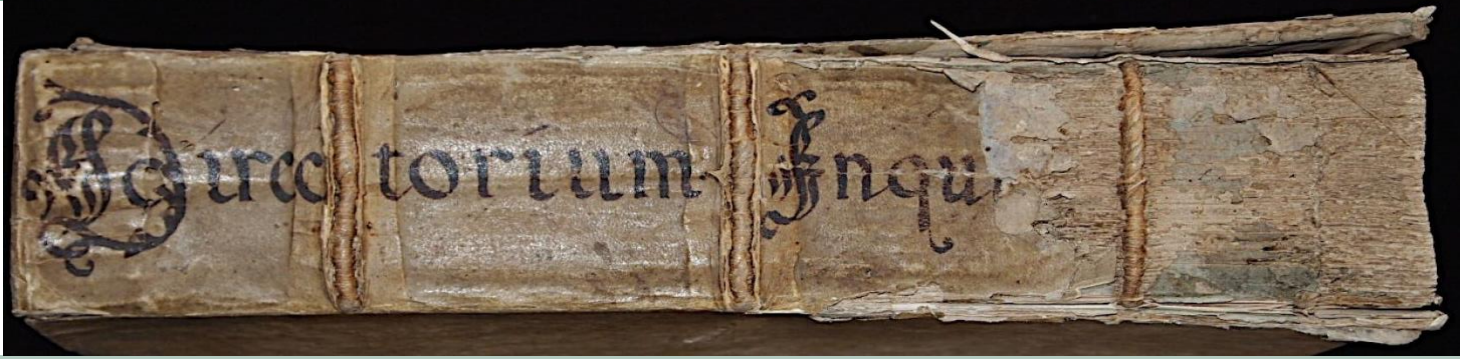 Directorium Inqui